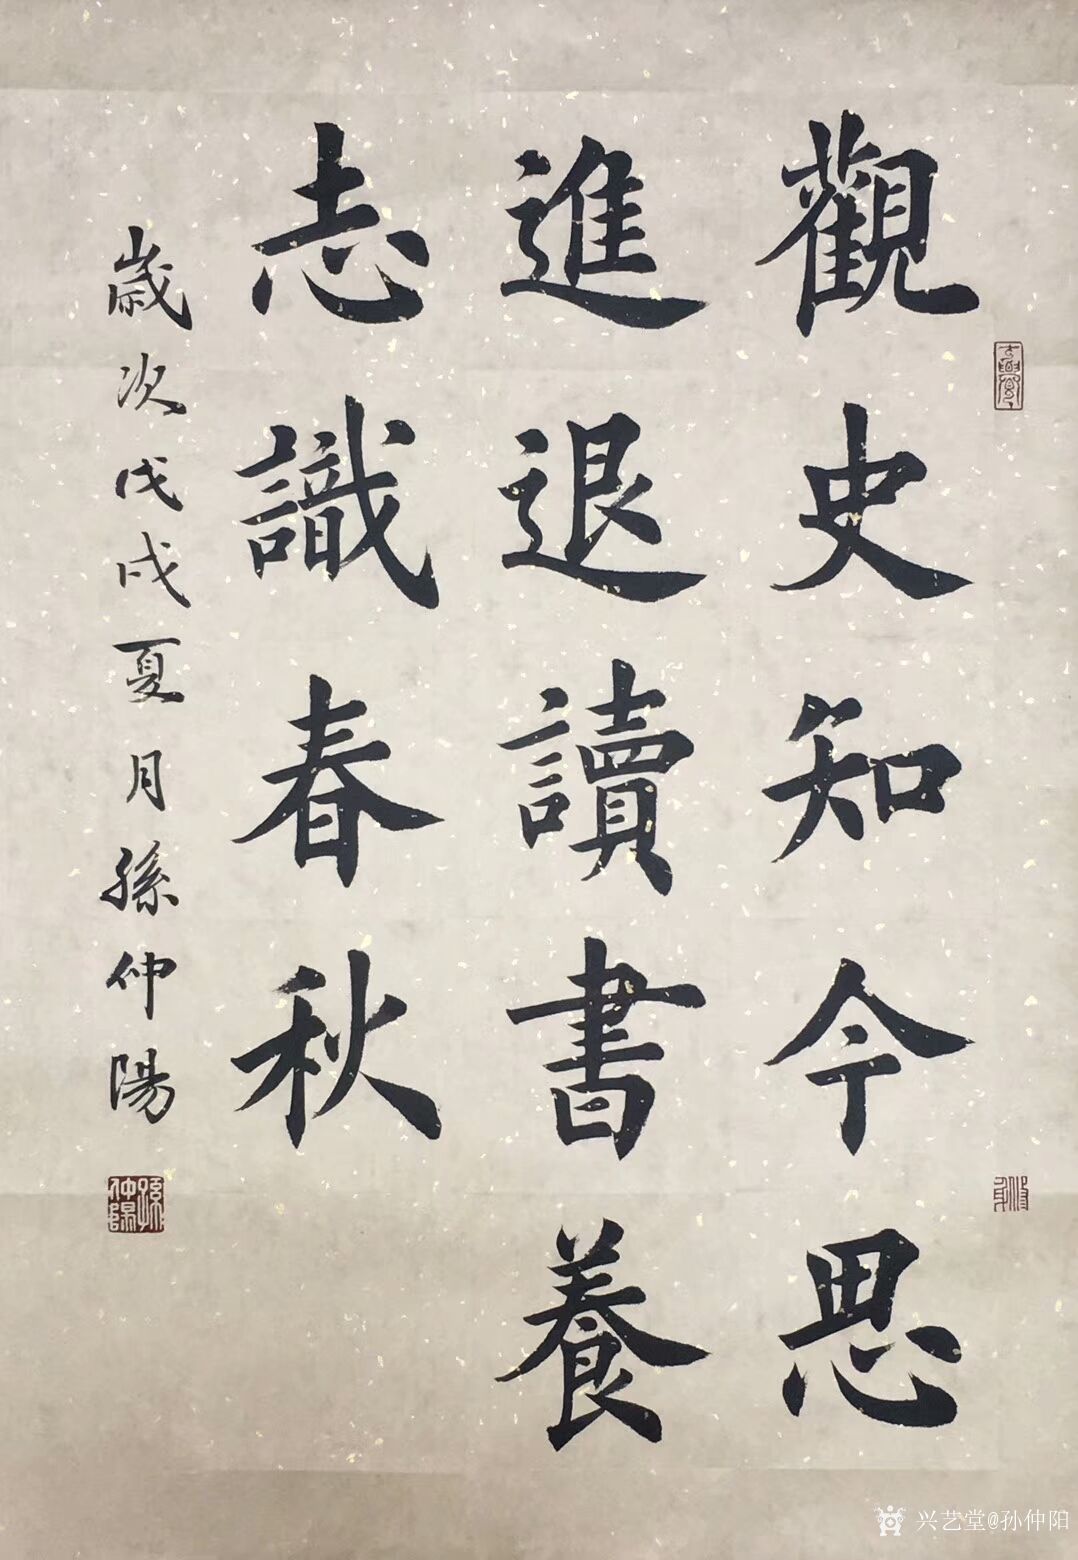 觀史知今思
進退讀書養
志識春秋
歲次戊戌夏月孫仲陽
孫仲陽
兴艺堂@孙仲阳